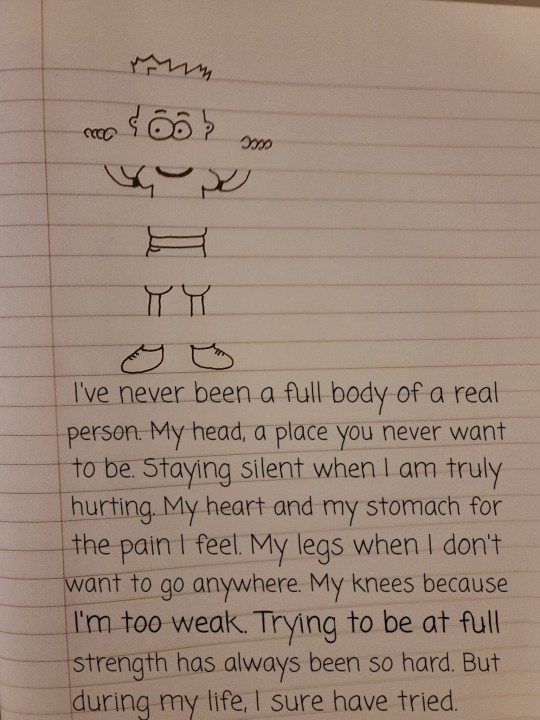 I've never been a full body of a real
person. My head, a place you never want
to be. Staying silent when I am truly
hurting. My heart and my stomach for
the pain I feel. My legs when I don't
want to go anywhere. My knees because
I'm too weak. Trying to be at full
strength has always been so hard. But
during my life, I sure have tried.